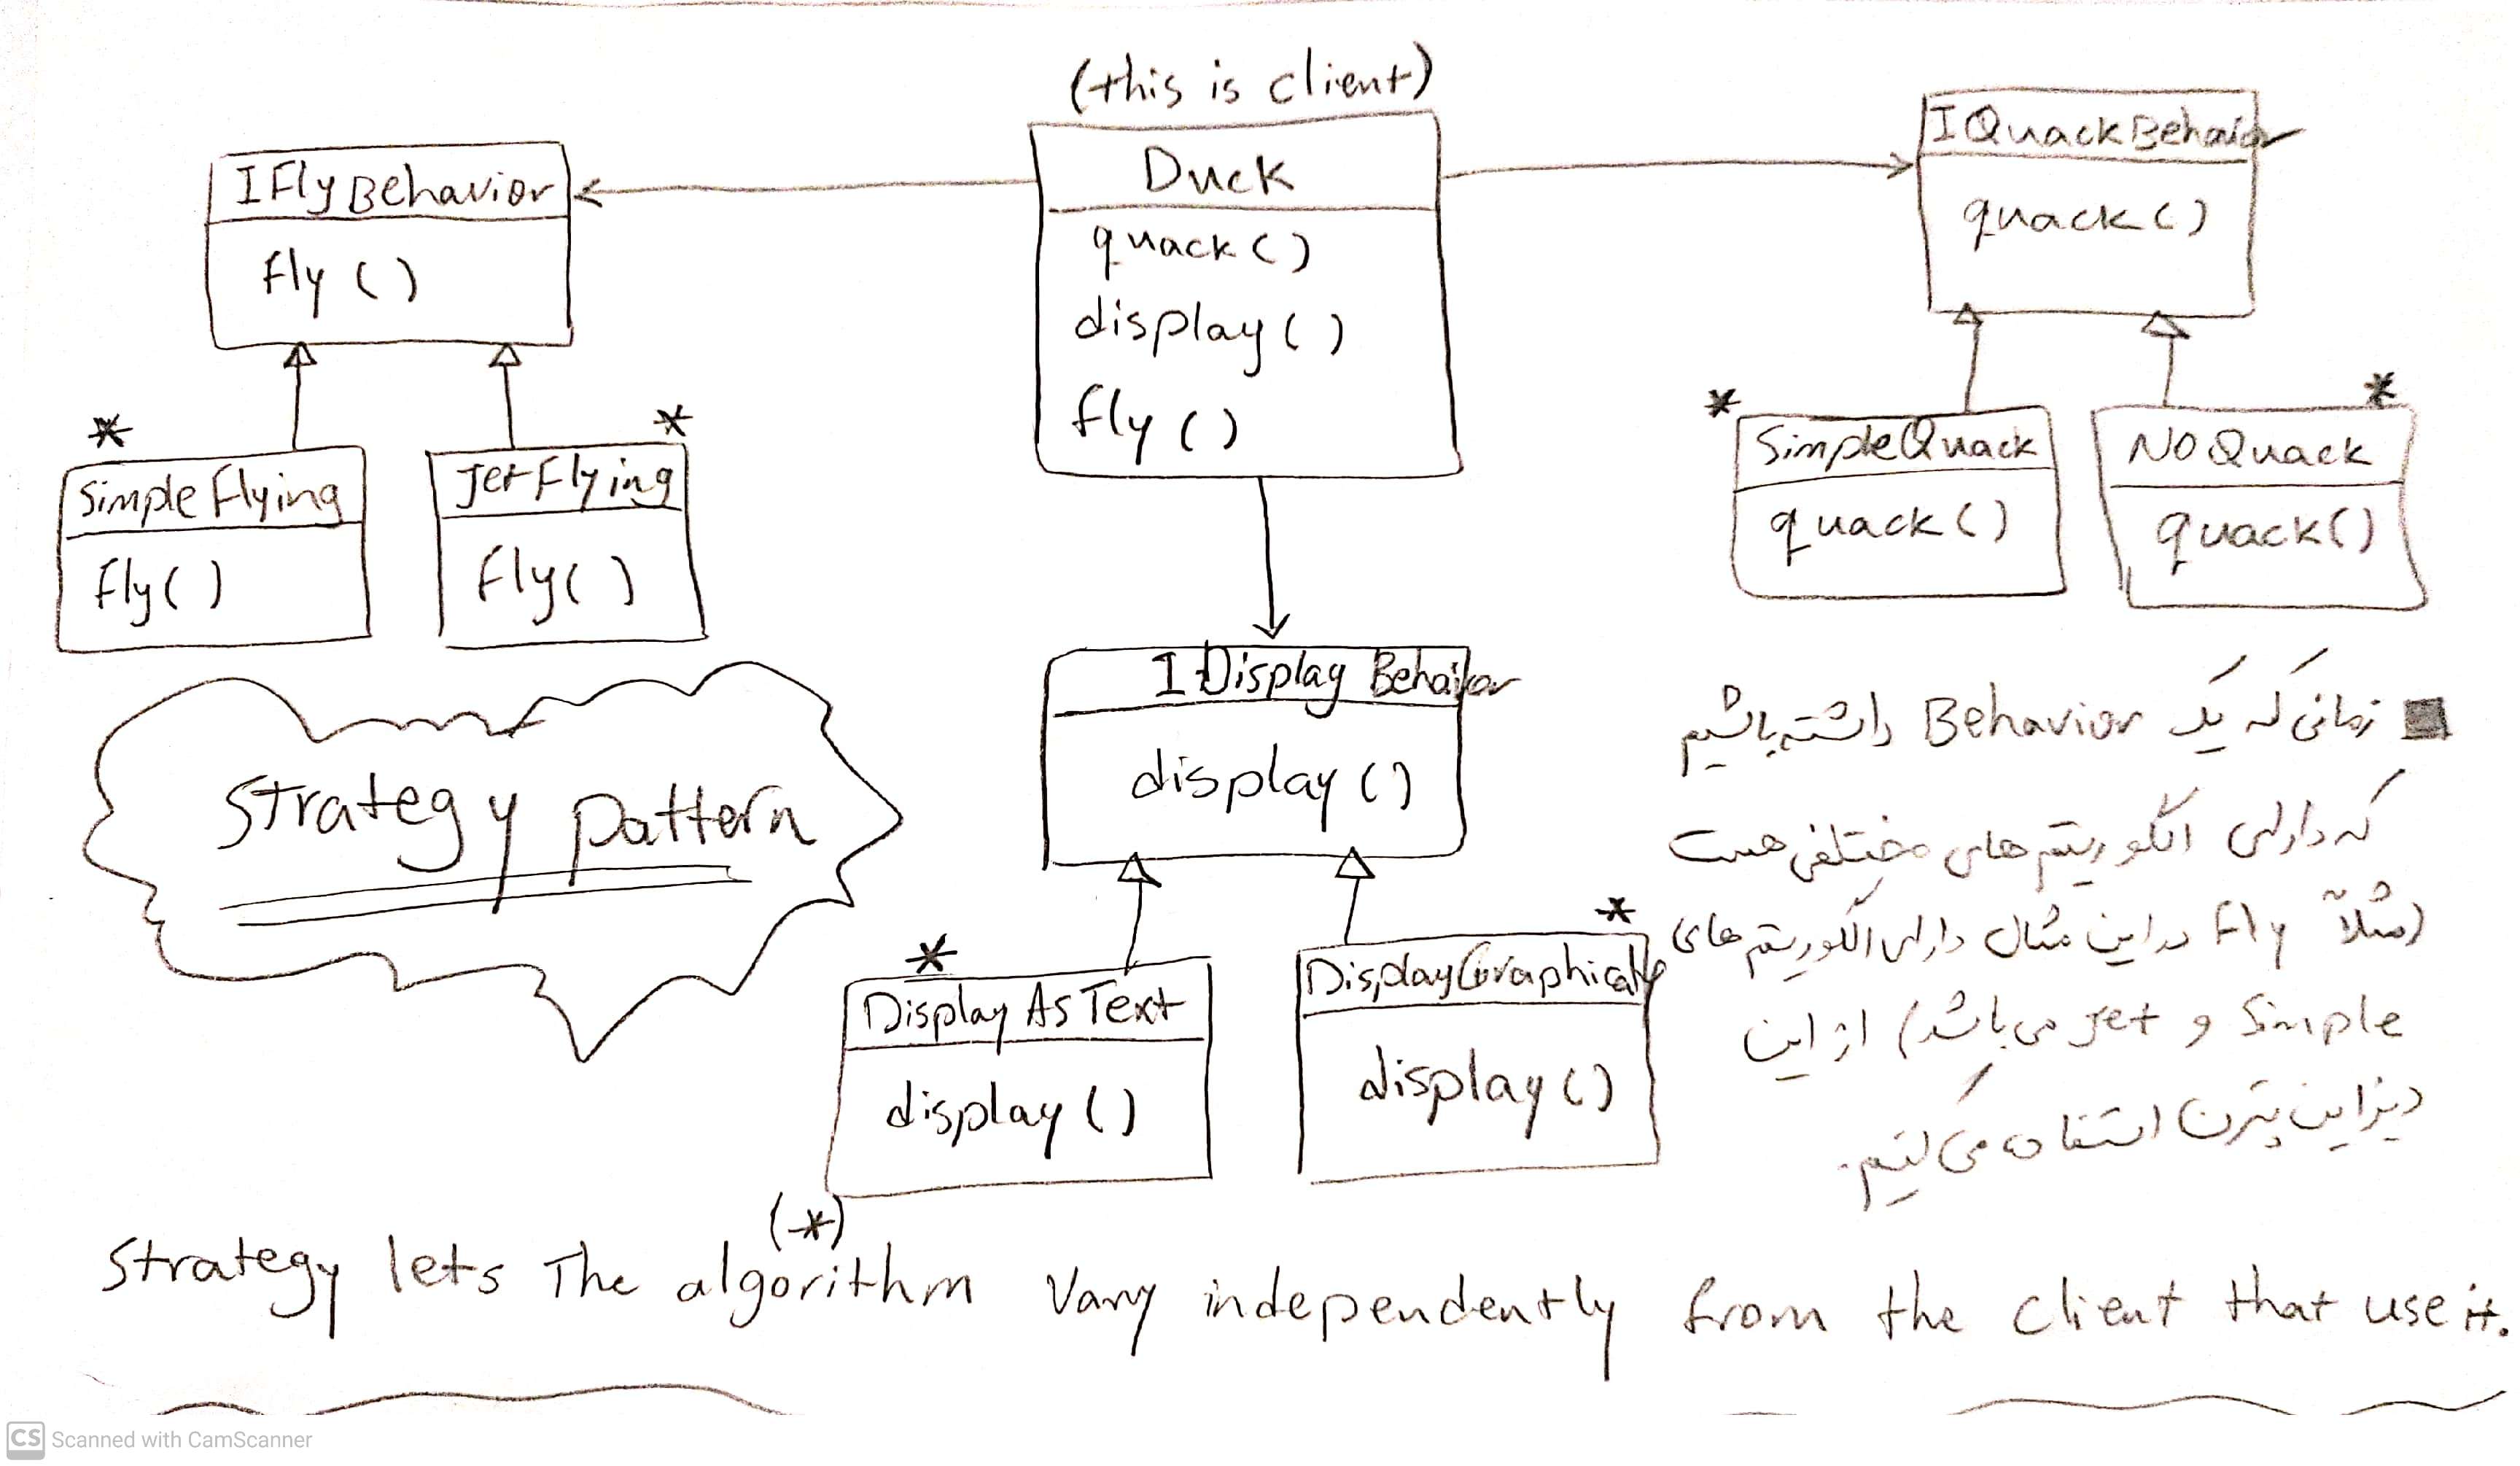 (this is client)
IFlyBehavior
fly ()
Duck
quack ()
display ()
fly ()
IQuackBehavior
quack ()
*
SimpleFlying
fly()
*
JetFlying
fly()
*
SimpleQuack
quack ()
*
NoQuack
quack()
IDisplay Behavior
display ()
strategy pattern
*
Display As Text
display ()
*
DisplayGraphically
display ()
زمانی که یک Behavior داشته باشیم
که دارای الگوریتم های مختلفی هست
(مثلاً fly در این مثال دارای الگوریتم های
Simple و Jet می باشد) از این
دیزاین پترن استفاده می کنیم.
(*)
Strategy lets The algorithm vary independently from the client that use it.
CS Scanned with CamScanner